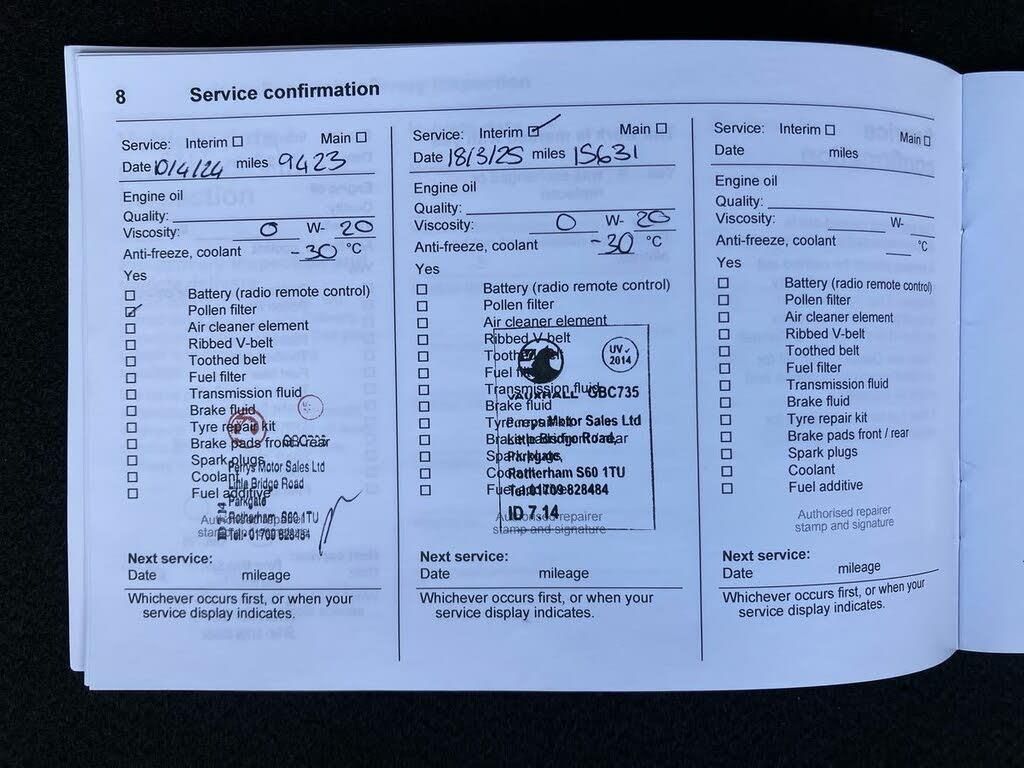 8 Service confirmation
Service: Interim ☐ Main ☐
Date 10/4/24 miles 9423
Engine oil
Quality:
Viscosity: 0 W- 20
Anti-freeze, coolant -30 °C
Yes
☐ Battery (radio remote control)
☑ Pollen filter
☐ Air cleaner element
☐ Ribbed V-belt
☐ Toothed belt
☐ Fuel filter
☐ Transmission fluid
☐ Brake fluid
☐ Tyre repair kit
☐ Brake pads front / rear
☐ Spark plugs
☐ Coolant
☐ Fuel additive
Perrys Motor Sales Ltd
Little Bridge Road
Parkgate
Rotherham S60 1TU
Tel: 01709 828484
ID 7.14
Authorised repairer
stamp and signature
Next service:
Date mileage
Whichever occurs first, or when your
service display indicates.
Service: Interim ☑ Main ☐
Date 18/3/25 miles 15631
Engine oil
Quality:
Viscosity: 0 W- 20
Anti-freeze, coolant -30 °C
Yes
☐ Battery (radio remote control)
☐ Pollen filter
☐ Air cleaner element
☐ Ribbed V-belt
☐ Toothed belt
☐ Fuel filter
☐ Transmission fluid
☐ Brake fluid
☐ Tyre repair kit
☐ Brake pads front / rear
☐ Spark plugs
☐ Coolant
☐ Fuel additive
UV✓
2014
VAUXHALL GBC735
Perrys Motor Sales Ltd
Little Bridge Road,
Parkgate,
Rotherham S60 1TU
Tel: 01709 828484
ID 7.14
Authorised repairer
stamp and signature
Next service:
Date mileage
Whichever occurs first, or when your
service display indicates.
Service: Interim ☐ Main ☐
Date miles
Engine oil
Quality:
Viscosity: W-
Anti-freeze, coolant °C
Yes
☐ Battery (radio remote control)
☐ Pollen filter
☐ Air cleaner element
☐ Ribbed V-belt
☐ Toothed belt
☐ Fuel filter
☐ Transmission fluid
☐ Brake fluid
☐ Tyre repair kit
☐ Brake pads front / rear
☐ Spark plugs
☐ Coolant
☐ Fuel additive
Authorised repairer
stamp and signature
Next service:
Date mileage
Whichever occurs first, or when your
service display indicates.